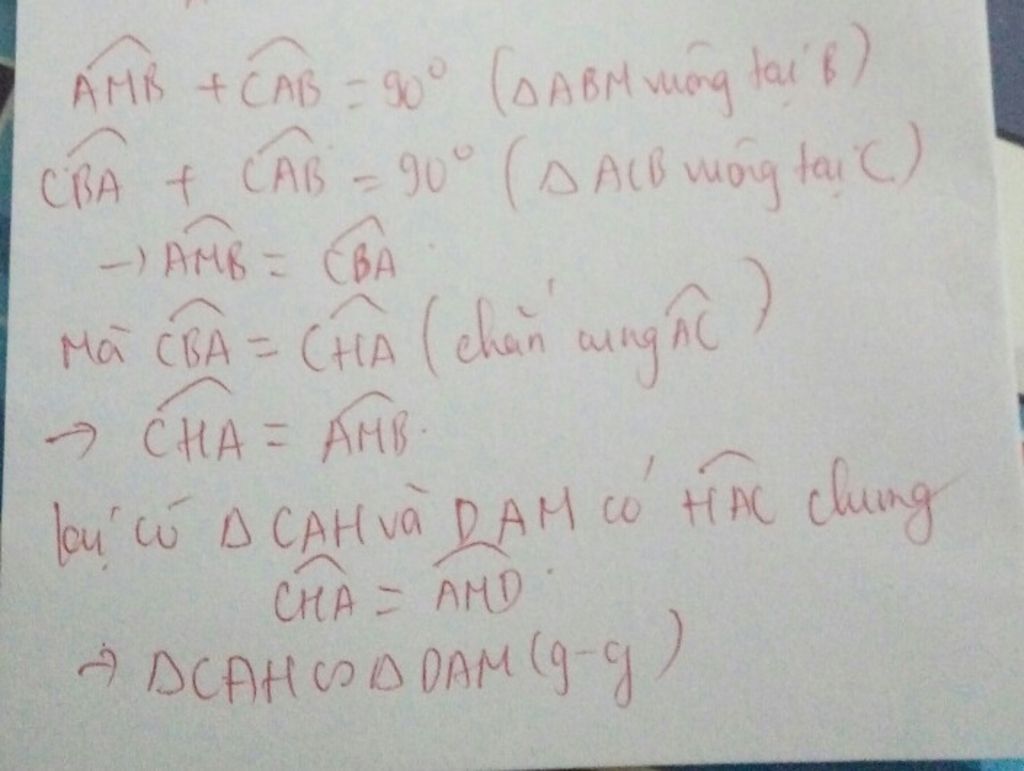 AMB + CAB = 90° (Δ ABM vuông tại B)
CBA + CAB = 90° (Δ ACB vuông tại C)
→ AMB = CBA
Mà CBA = CHA (chắn cung AC)
→ CHA = AMB.
lại có Δ CAH và DAM có HAC chung
CHA = AMD
→ ΔCAH ∽ Δ DAM (g-g)